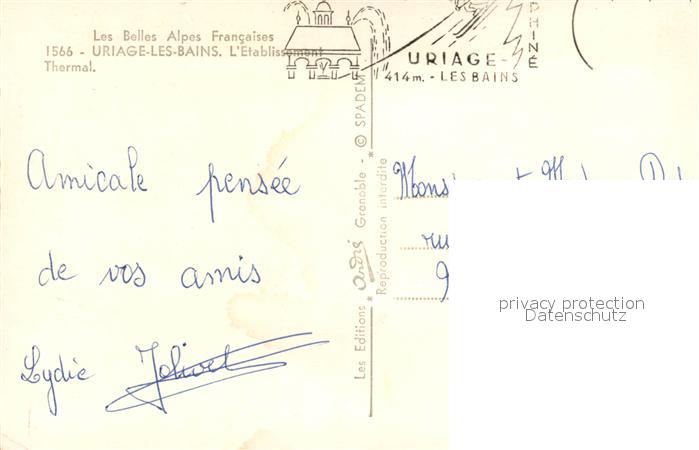 Les Belles Alpes Françaises
1566 - URIAGE-LES-BAINS. L'Etablissement
Thermal.
PHINÉ
URIAGE-
414m. - LES BAINS
Amicale pensée
de vos amis
Lydie Jolivet
Les Editions André Grenoble - © SPADEM
Reproduction interdite
privacy protection
Datenschutz